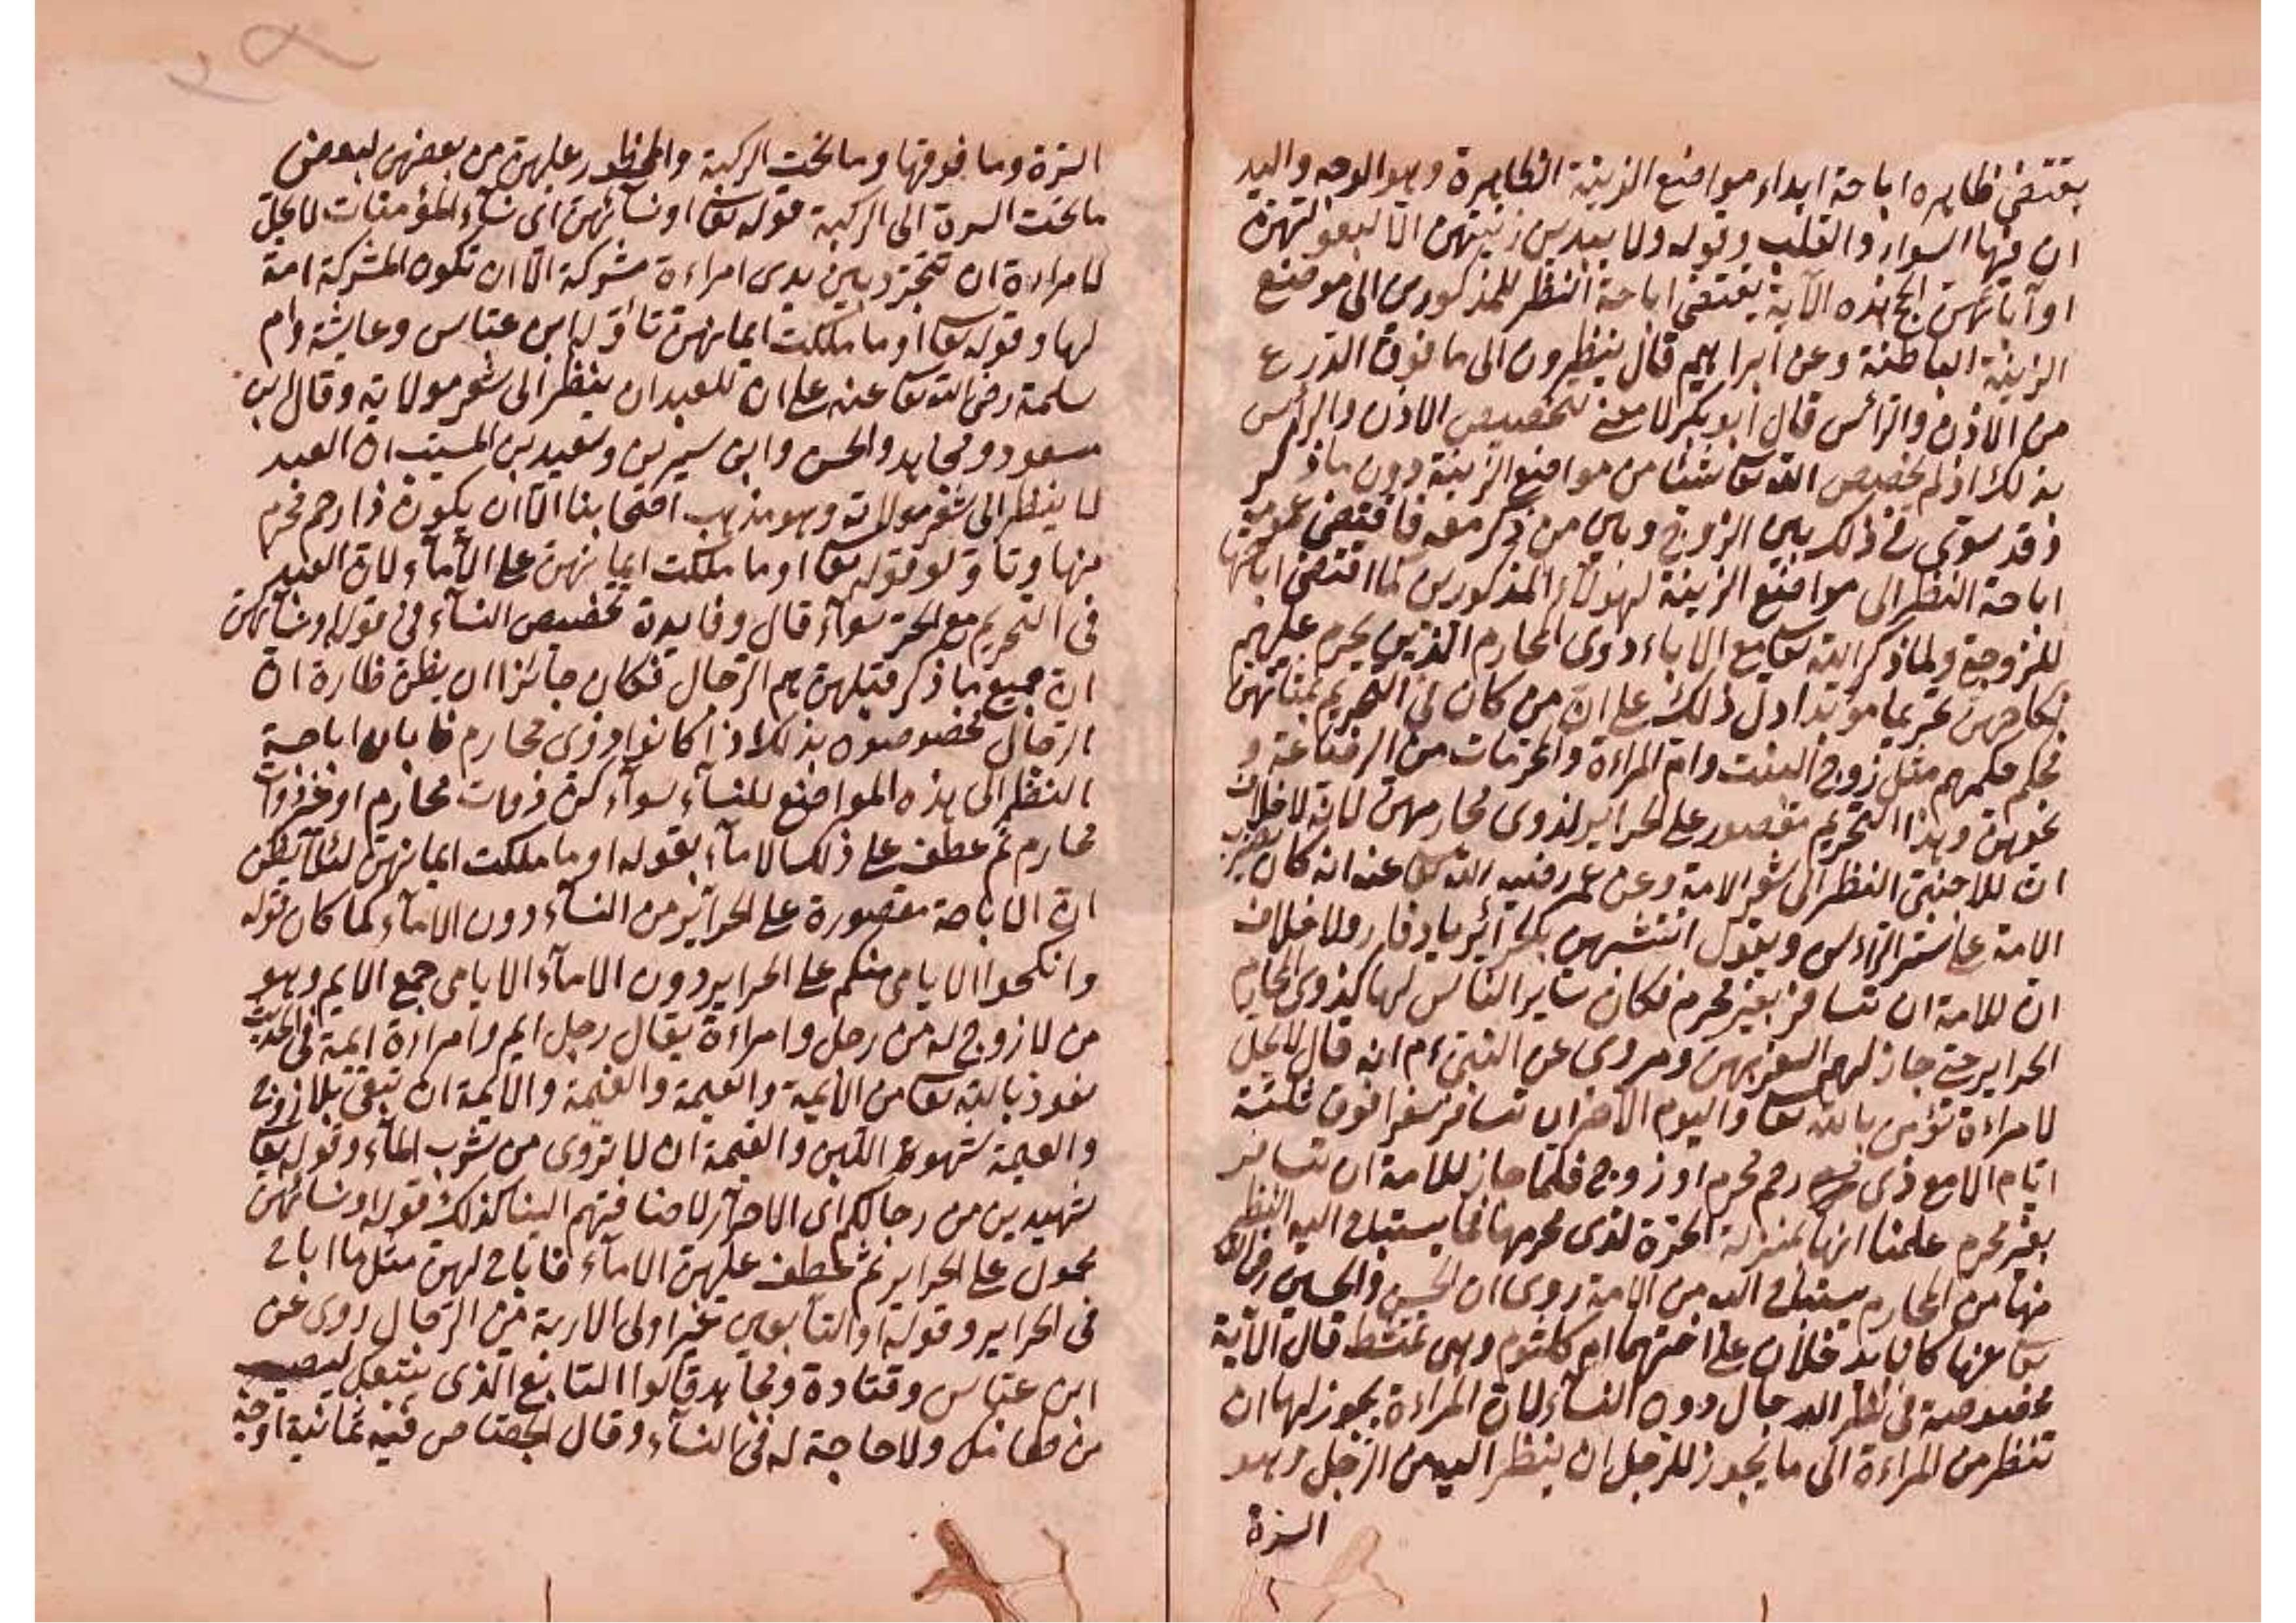 يقتضى ظاهره اباحة ابداء مواضع الزينة الظاهرة وهو الوجه واليد
ان فيها السوار والقلب وقوله ولا يبدين زينتهن الا لبعولتهن
او آبائهن الخ هذه الآية يقتضى اباحة النظر للمذكورين الى موضع
الزينة الباطنة وعن ابراهيم قال ينظرون الى ما فوق الدرع
من الاذن والرأس قال ابو بكر لا معنى لتخصيص الاذن والرأس
بذلك اذ لم يخصص الله تعا شيئا من مواضع الزينة دون ما ذكر
ذ قد سوى فى ذلك بين الزوج وبين من ذكر معه فاقتضى عمومه
اباحة النظر الى مواضع الزينة لهؤلاء المذكورين كما اقتضى اباحتها
للزوجة ولما ذكر الله تعا مع الاباء ذوى المحارم الذين يحرم عليهم
نكاحهن تحريما مؤبدا دل ذلك على ان من كان فى التحريم بمثابتهن
فحكم حكمهم مثل زوج البنت وام المراءة والمحرمات من الرضاعة و
نحوهن وهذا التحريم مقصور على الحراير لذوى محارمهن لانه لا خلاف
ان للاجنبى النظر الى شعر الامة وعن عمر رضيه الله تعا عنه انه كان يضرب
الامة على ستر الرأس ويقول اتتشبهين بالحرائر يا دفار ولا خلاف
ان للامة ان تسافر بغير محرم فكان سائر الناس لها كذوى المحارم
الحراير حتى جاز لهم السفر بهن ومروى عن النبى ءم انه قال لا يحل
لامراءة تؤمن بالله تعا واليوم الاخر ان تسافر سفرا فوق ثلثة
ايام الا مع ذى رحم محرم او زوج فلما جاز للامة ان تسافر
بغير محرم علمنا انها بمنزلة الحرة لذى محرمها فما يستباح اليه النظر
منها من المحارم يستباح اليه من الامة روى ان الحسن والحسين رضى الله
تعا عنها كانا يدخلان على اختهما ام كلثوم وهى تمتشط قال الآية
مخصوصة فى نظر الرجال دون النساء لان المراءة يجوز لها ان
تنظر من المراءة الى ما يجوز للرجل ان ينظر اليه من الرجل وهو
السرة
السرة وما فوقها وما تحت الركبة والمحظور عليهن من بعضهن لبعض
ما تحت السرة الى الركبة قوله تعا او نسآئهن اى نسآء المؤمنات لا يحل
لامراءة ان تتجرد بين يدى امراءة مشركة الا ان تكون المشركة امة
لها وقوله تعا او ما ملكت ايمانهن تاوله ابن عباس وعايشة وام
سلمة رضى الله تعا عنه على ان للعبد ان ينظر الى شعر مولاته وقال ابن
مسعود ومجاهد والحسن وابن سيرين وسعيد بن المسيب ان العبد
لا ينظر الى شعر مولاته وهو مذهب اصحابنا الا ان يكون ذا رحم محرم
منها وتاولو قوله تعا او ما ملكت ايمانهن على الأمآء لان العبد
فى التحريم مع الحر سوآء قال وفايدة تخصيص النسآء فى قوله او نسآئهن
ان جميع ما ذكر قبلهن هم الرجال فكان جائزا ان يظن ظان ان
الرجال مخصوصون بذلك اذا كانوا ذوى محارم فابان اباحة
النظر الى هذه المواضع للنسآء سوآء كن ذوات محارم او غير ذوات
محارم ثم عطف على ذلك الامآء بقوله او ما ملكت ايمانهن لئلا يظن
ان الاباحة مقصورة على الحرائر من النسآء دون الامآء كما كان قوله
وانكحوا الايامى منكم على الحراير دون الامآء الايامى جمع الايم وهو
من لا زوج له من رجل وامراءة يقال رجل ايم وامراءة ايمة فى الحديث
نعوذ بالله تعا من الأيمة والعيمة والغيمة والايمة ان تبقى بلا زوج
والعيمة شهوة اللبن والغيمة ان لا تروى من شرب المآء وقوله تعا
شهيدين من رجالكم اى الاحرار لاضافتهم الينا كذلك قوله او نسائهن
محمول على الحراير ثم عطف عليهن الامآء فاباح لهن مثل ما اباح
فى الحراير وقوله او التابعين غير اولى الاربة من الرجال روى عن
ابن عباس وقتادة ومجاهد قالوا التابع الذى يتبعك ليصيب
من طعامك ولا حاجة له فى النسآء وقال الجصاص فيه ثمانية اوجه